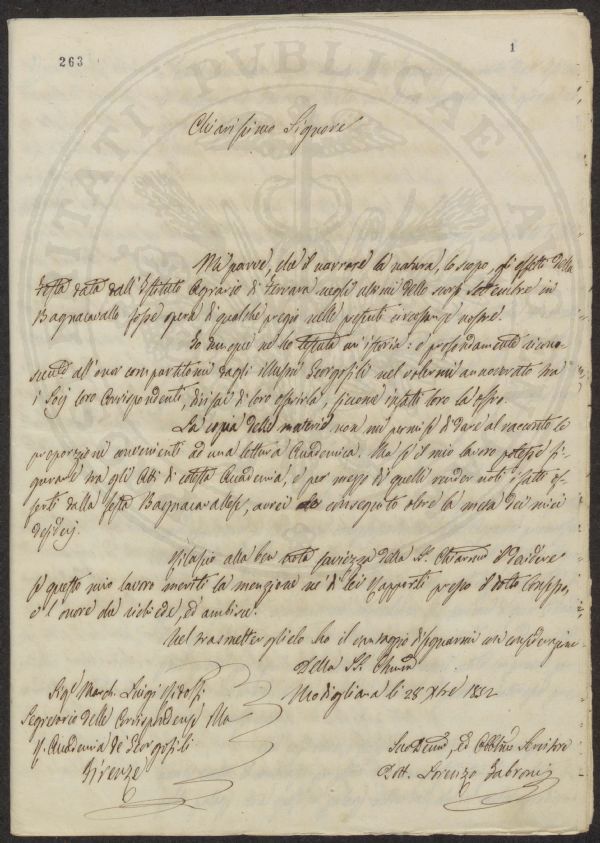 263
1
Chiarissimo Signore
Mi parve, che il narrare la natura, lo scopo, gli effetti della
Festa data dall'Istituto Agrario di Ferrara negli ultimi dello scorso settembre in
Bagnacavallo fosse opera di qualche pregio nelle presenti circostanze nostre.
Io dunque ne ho tessuta un'istoria: e profondamente ricono-
scente all'onor compartitomi dagli illustri Georgofili nel avermi annoverato tra
i Socj loro Corrispondenti, divisai di loro offrirla, siccome infatti loro la offro.
La copia delle materie non mi permise di dare al racconto le
proporzioni convenienti ad una lettura Accademica. Ma se il mio lavoro potesse fi-
gurare tra gli Atti di cotesta Accademia, e per mezzo di quelli render noti i fatti of-
ferti dalla festa Bagnacavallese, avrei conseguito oltre la meta dei miei
desiderj.
Rilascio alla ben nota saviezza della S. V. Chiarma il decidere
se questo mio lavoro meriti la menzione ne di lei rapporti presso il dotto Consesso,
e l'onore che richiede, ed ambisce.
Nel trasmetterglielo ho il vantaggio di segnarmi con considerazione
Della S. V. Chiarma
Modigliana li 28 Xbre 1832
Sigr March. Luigi Ridolfi
Segretario delle Corrispondenze della
R. Accademia de' Georgofili
Firenze
Suo Devmo, ed Obblmo Servitore
Dott. Lorenzo Fabroni
PUBLICAE